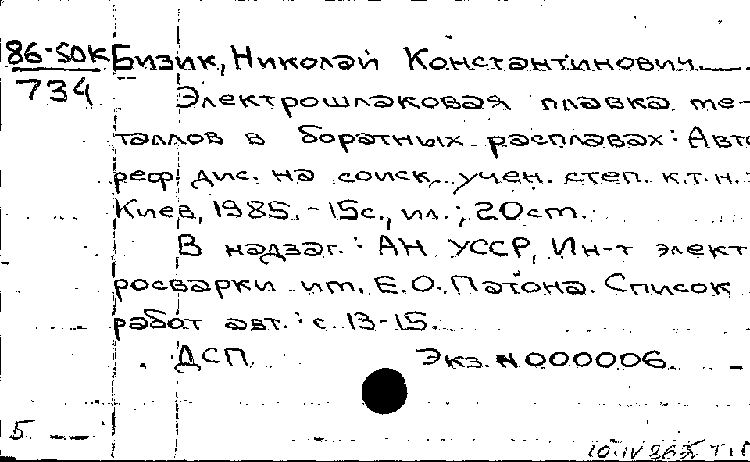 86-50К Бизик, Николай Константинович.
734
Электрошлаковая плавка ме-
таллов в боратных расплавах: Авто
реф. дис. на соиск. учен. степ. к.т.н.:
Киев, 1985. - 15 с., ил.; 20 ст.
В надзаг.: АН УССР, Ин-т элект
росварки им. Е.О. Патона. Список
работ авт.: с. 13-15.
ДСП Экз. N 000006.
5